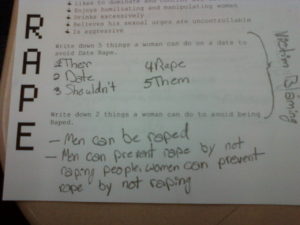 Likes to dominate and control women
Enjoys humiliating and manipulating women
Drinks excessively
Believes his sexual urges are uncontrollable
Is aggressive
RAPE
Write down 5 things a woman can do on a date to
avoid Date Rape.
1 Their 4 Rape
2 Date 5 Them
3 Shouldn't
Write down 2 things a woman can do to avoid being
Raped.
- Men can be raped
- Men can prevent rape by not
raping people. women can prevent
rape by not raping
Victim Blaming